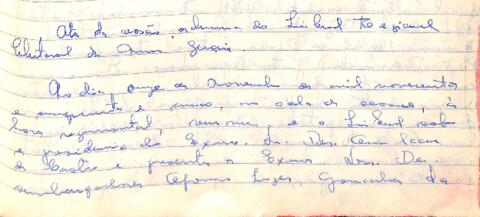 Ata da sessão ordinaria do Tribunal Regional
Eleitoral de Minas Gerais.
Aos dias onze de novembro de mil novecentos
e cinquenta e cinco, na sala de sessões, à
hora regimental, reuniu-se o Tribunal sob
a presidencia do Exmo. Sr. Des.
de Castro e presentes os Exmos Srs. Des-
embargadores Afonso Lages, Gonçalves da